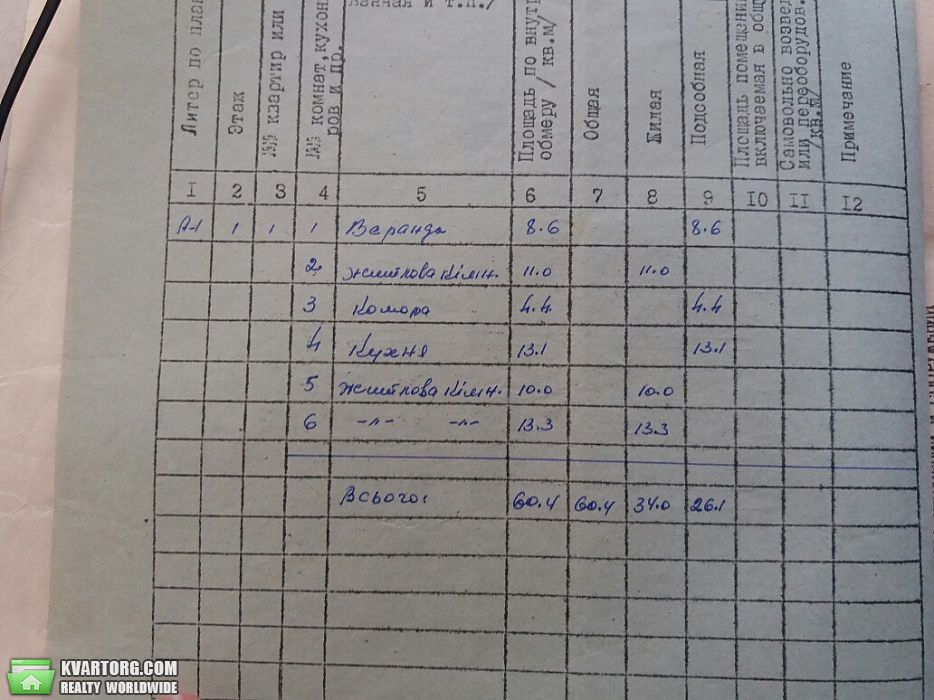 ванная и т.п./
Литер по план
Этаж
№№ квартир или
№№ комнат, кухон
ров и др.
Площадь по внутр
обмеру / кв.м/
Общая
Жилая
Подсобная
Площадь помещени
включаемая в общ
Самовольно возвед
или переоборудов.
/кв.м/
Примечание
1 2 3 4 5 6 7 8 9 10 11 12
А-1 1 1 1 Веранда 8.6 8.6
2 житлова кімн. 11.0 11.0
3 Комора 4.4 4.4
4 Кухня 13.1 13.1
5 житлова кімн. 10.0 10.0
6 -"- -"- 13.3 13.3
Всього: 60.4 60.4 34.0 26.1
KVARTORG.COM
REALTY WORLDWIDE